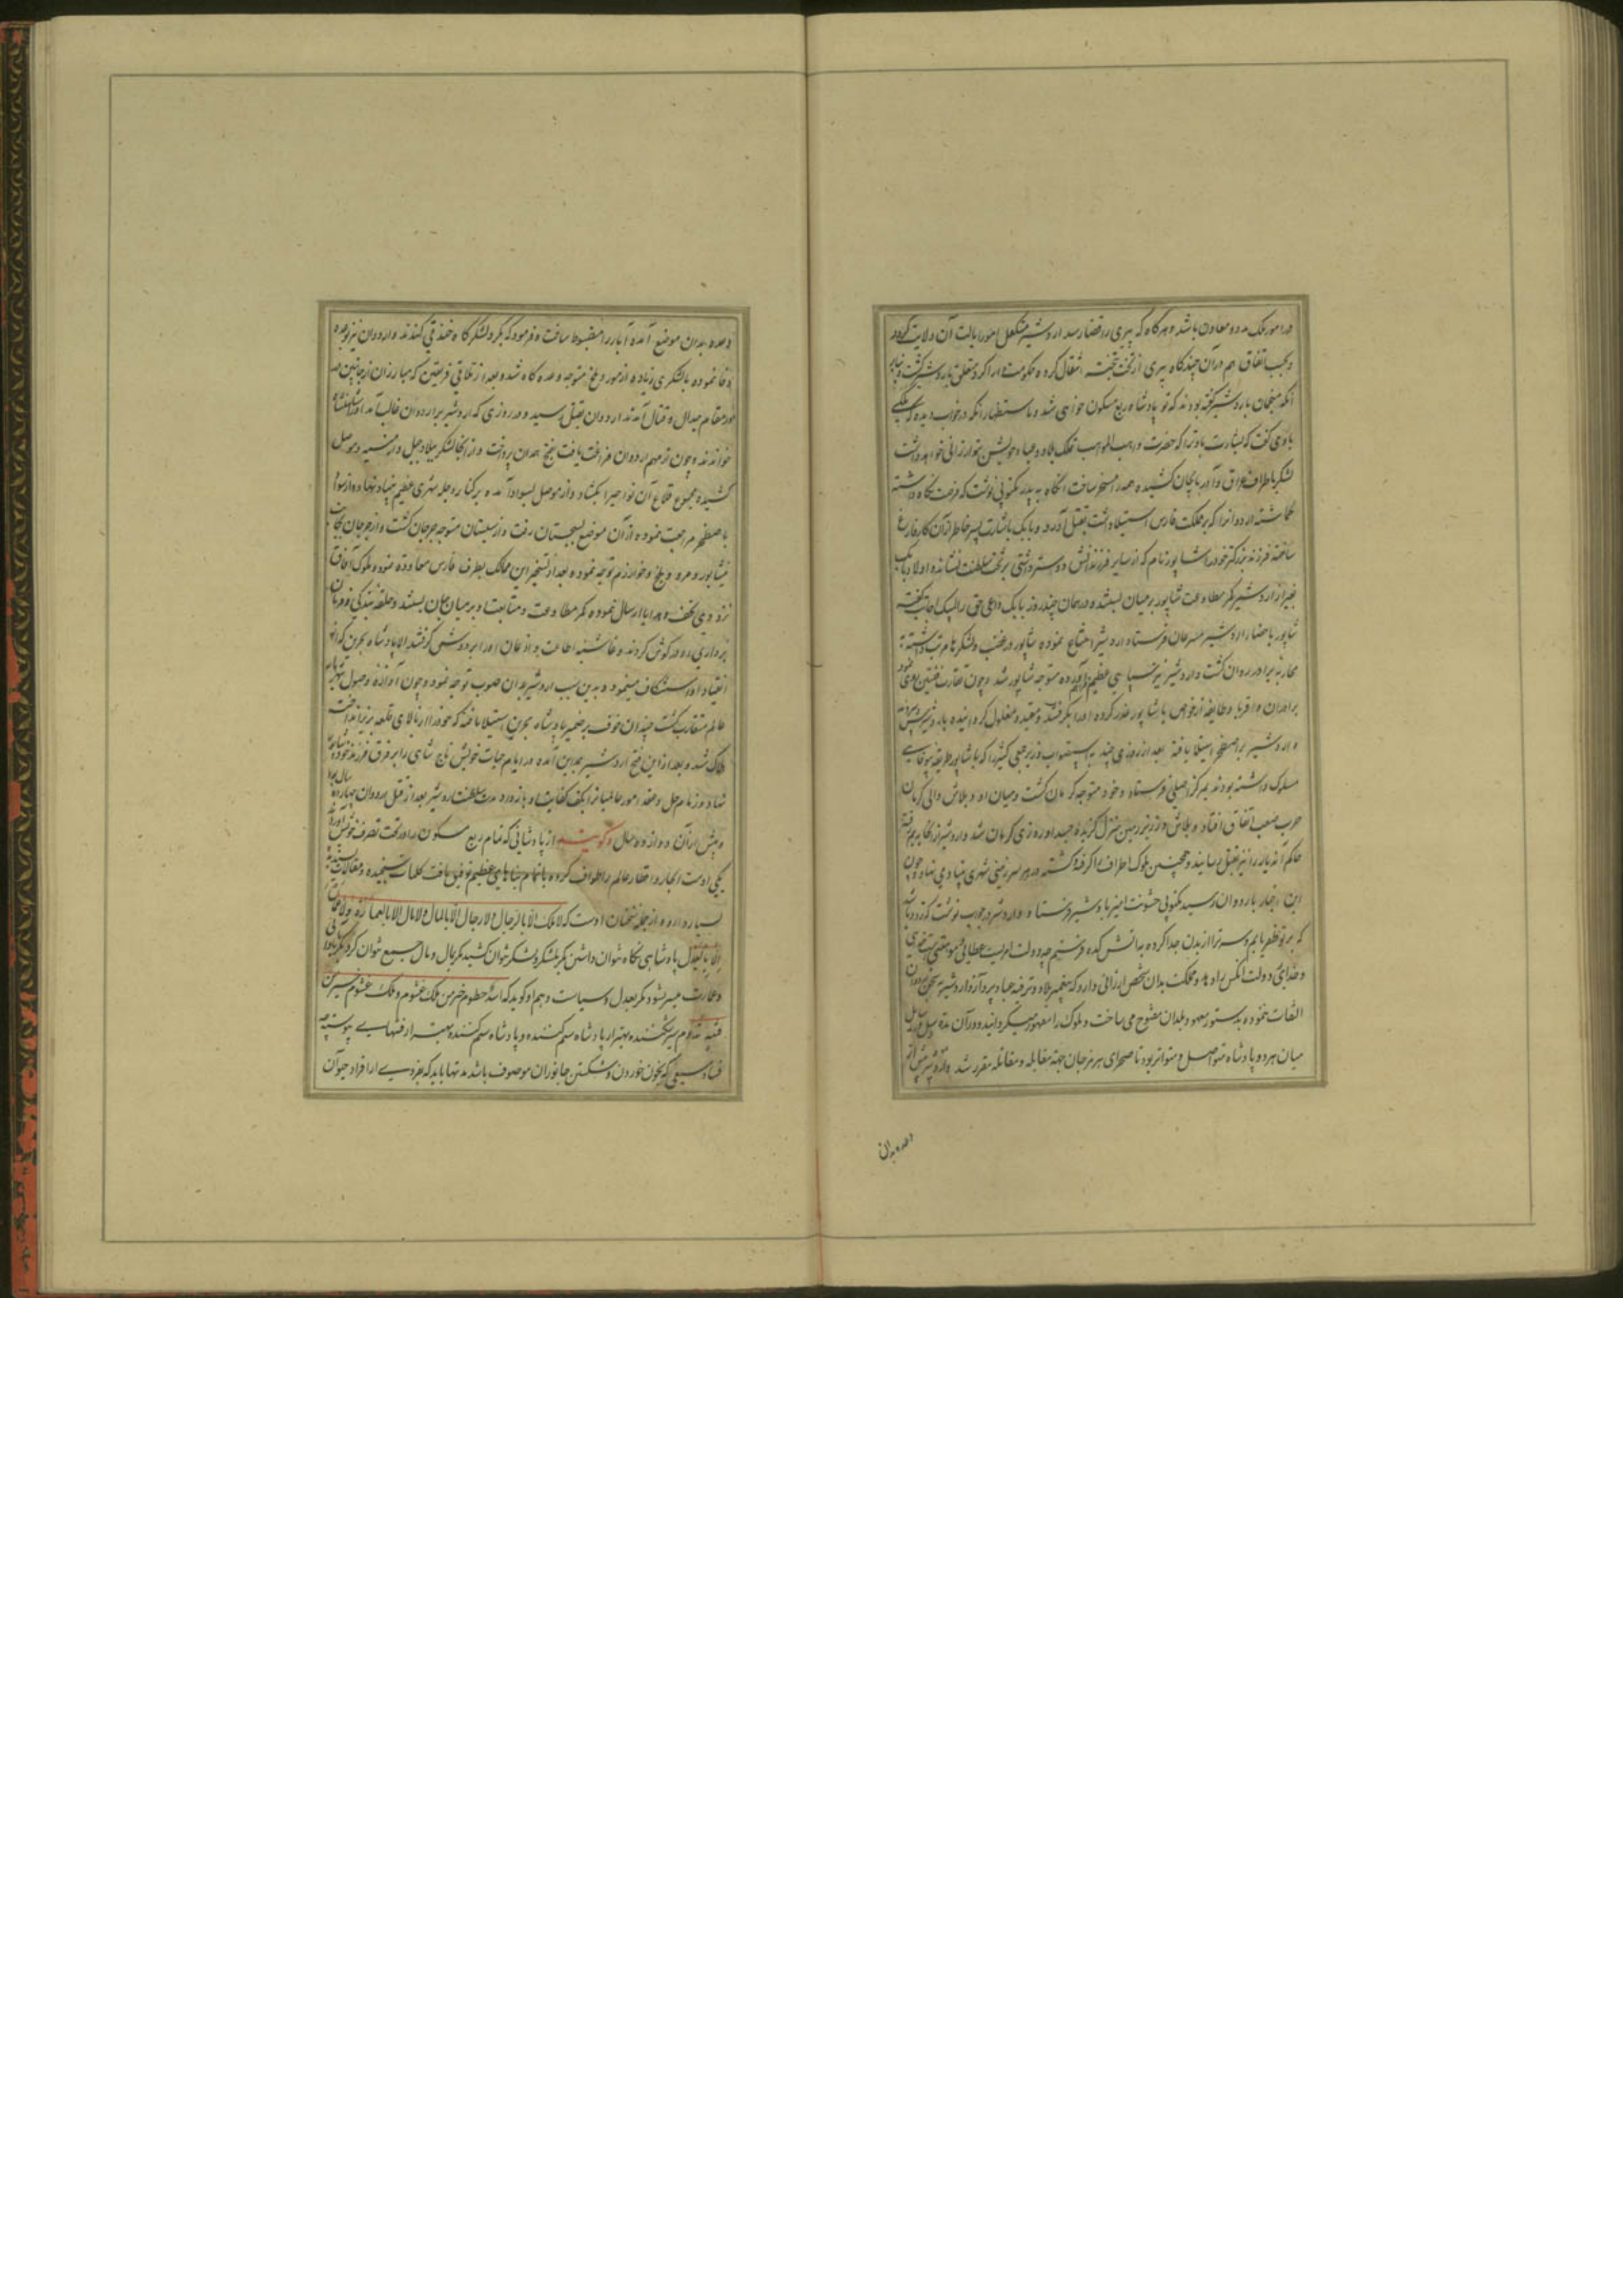 در امور ملک مدد و معاون باشد و هرگاه که پیری را قضا رسد اردشیر متکفل امور ایالت آن ولایت گردد
و بحسب اتفاق هم در آن چندگاه پیری از تخت بتخته انتقال کرده حکومت دارابکرد متعلق باردشیر گشت و بنابر
آنکه منجمان باردشیر گفته بودند که تو پادشاه ربع مسکون خواهی شد و باستظهار آنکه در خواب دیده که ملکی
با وی گفت که بشارت باد ترا که حضرت واهب المواهب تملک بلاد و عباد خویش بتو ارزانی خواهد داشت
لشکر باطراف عراق و آذربایجان کشیده همه را مسخر ساخت آنگاه به پدر مکتوبی نوشت که فرصت نگاه داشته
گماشته اردوان را که بر مملکت فارس استیلا داشت بقتل آورد و بابک باشارت پسر خاطر از آن کار فارغ
ساخته فرزند بزرگتر خود را شاپور نام که از سایر فرزندانش دوستر داشتی بر تخت سلطنت نشانده اولاد بابک
بغیر از اردشیر کمر مطاوعت شاپور بر میان بستند و در همان چند روز بابک داعی حق را لبیک اجابت گفته
شاپور باحضار اردشیر مسرعان فرستاد اردشیر امتناع نموده شاپور در غضب و لشکرها مرتب داشته
محاربه برادر روان گشت و اردشیر نیز سپاهی عظیم فراهم آورده متوجه شاپور شد و چون تقارب فئتین روی نمود
برادران و اقربا و طایفه از خواص با شاپور غدر کرده او را بگرفتند و مقید و مغلول گردانیده باردشیر سپردند
و اردشیر بر اصطخر استیلا یافته بعد از روزی چند به استصواب وزیر جمعی کثیر را که با شاپور طریقه بیوفایی
مسلوک داشته بودند بمرکز اصلی فرستاد و خود متوجه کرمان گشت و میان او و بلاش والی کرمان
حرب صعب اتفاق افتاد و بلاش در زیر زمین منزل گزیده جسد او روزی کرمان شد و اردشیر از آنجا
حاکم آن دیار را نیز بقتل رسانید و همچنین ملوک اطراف را گرفته کشته در هر سرزمینی شهری بنیاد می نهاد و چون
این اخبار باردوان رسید مکتوبی خشونت آمیز باردشیر فرستاد و اردشیر در جواب نوشت که زود باشد
که بر تو ظفر یابم و سر ترا از بدن جدا کرده به آتش کده فرستم چه دولت امریست عطایی و موهبتی است
و خدای دولت آنکس را دهد و مملکت بدان شخص ارزانی دارد که بتعمیر بلاد و ترفیه عباد پردازد و اردشیر بسخن اردوان
التفات ننموده بدستور معهود بلدان مفتوح می ساخت و ملوک را مقهور میگردانید و در آن مدت رسل و رسایل
میان هر دو پادشاه متواصل و متواتر بود تا صحرای هرمزجان جهة مقابله و مقاتله مقرر شد و اردشیر پیش از
وعده بدان
وعده بدان موضع آمده آبار را مضبوط ساخت و فرمود که بگرد لشکرگاه خندقی کندند و اردوان نیز بوعده
وفا نموده با لشکری زیاده از مور و ملخ متوجه وعده گاه شد و بعد از تلاقی فریقین که مبارزان از جانبین
در مقام جدال و قتال آمدند اردوان بقتل رسید و در روزی که اردشیر بر اردوان غالب آمد او را شاهنشاه
خواندند و چون از مهم اردوان فراغت یافت بفتح همدان پرداخت و از آنجا لشکر ببلاد جبل و ارمنیه و موصل
کشیده مجموع قلاع آن نواحی را بگشاد و از موصل بسواد آمده بر کنار دجله شهری عظیم بنیاد نهاد و از سواد
باصطخر مراجعت نموده از آن موضع بسجستان رفت و از سیستان متوجه جرجان گشت و از جرجان بجانب
نیشابور و مرو و بلخ و خوارزم توجه نمود و بعد از تسخیر این ممالک بطرف فارس معاودت نمود و ملوک آفاق
نزد وی تحف و هدایا ارسال نموده کمر مطاوعت و متابعت او بر میان جان بستند و حلقه بندگی و فرمان
برداری در گوش کردند و غاشیه اطاعت و اذعان او را بر دوش گرفتند الا پادشاه بحرین که از
انقیاد او استنکاف مینمود و بدین سبب اردشیر بدان صوب توجه نمود و چون آوازه وصول شهریار
عالم متقارب گشت چندان خوف بر ضمیر پادشاه بحرین استیلا یافته که خود را از بالای قلعه بزیر انداخت
هلاک شد و بعد از این فتح اردشیر بمداین آمده در ایام حیات خویش تاج شاهی را بر فرق فرزند خود شاپور
نهاد و زمام حل و عقد امور عالمیان را بکف کفایت او باز داد مدت سلطنت اردشیر بعد از قتل اردوان چهارده سال بود
و پیش از آن دوازده سال و گویند از پادشاهانی که تمام ربع مسکون را در تحت تصرف خویش آوردند
یکی اوست انجار و اقطار عالم را طواف کرده باتمام بناهای عظیم توفیق یافت کلمات سنجیده و مقالات پسندیده
بسیار دارد و از جمله سخنان اوست که لا ملک الا بالرجال و لا رجال الا بالمال و لا مال الا بالعمارة و لا عمارة
الا بالعدل پادشاهی نگاه نتوان داشتن مگر بلشکر و لشکر نتوان کشید مگر بمال و مال جمع نتوان کرد مگر بآبادانی
و عمارت میسر نشود مگر بعدل و سیاست و هم او گوید که اسد حطوم خیر من ملک غشوم و ملک غشوم خیر من
فتنة تدوم شیر شکننده بهتر از پادشاه ستم کننده و پادشاه ستم کننده بهتر از فتنهای پیوسته
فساد سبعی که بخون خوردن و شکستن جانوران موصوف باشد مدتها باید که بفردی از افراد حیوان